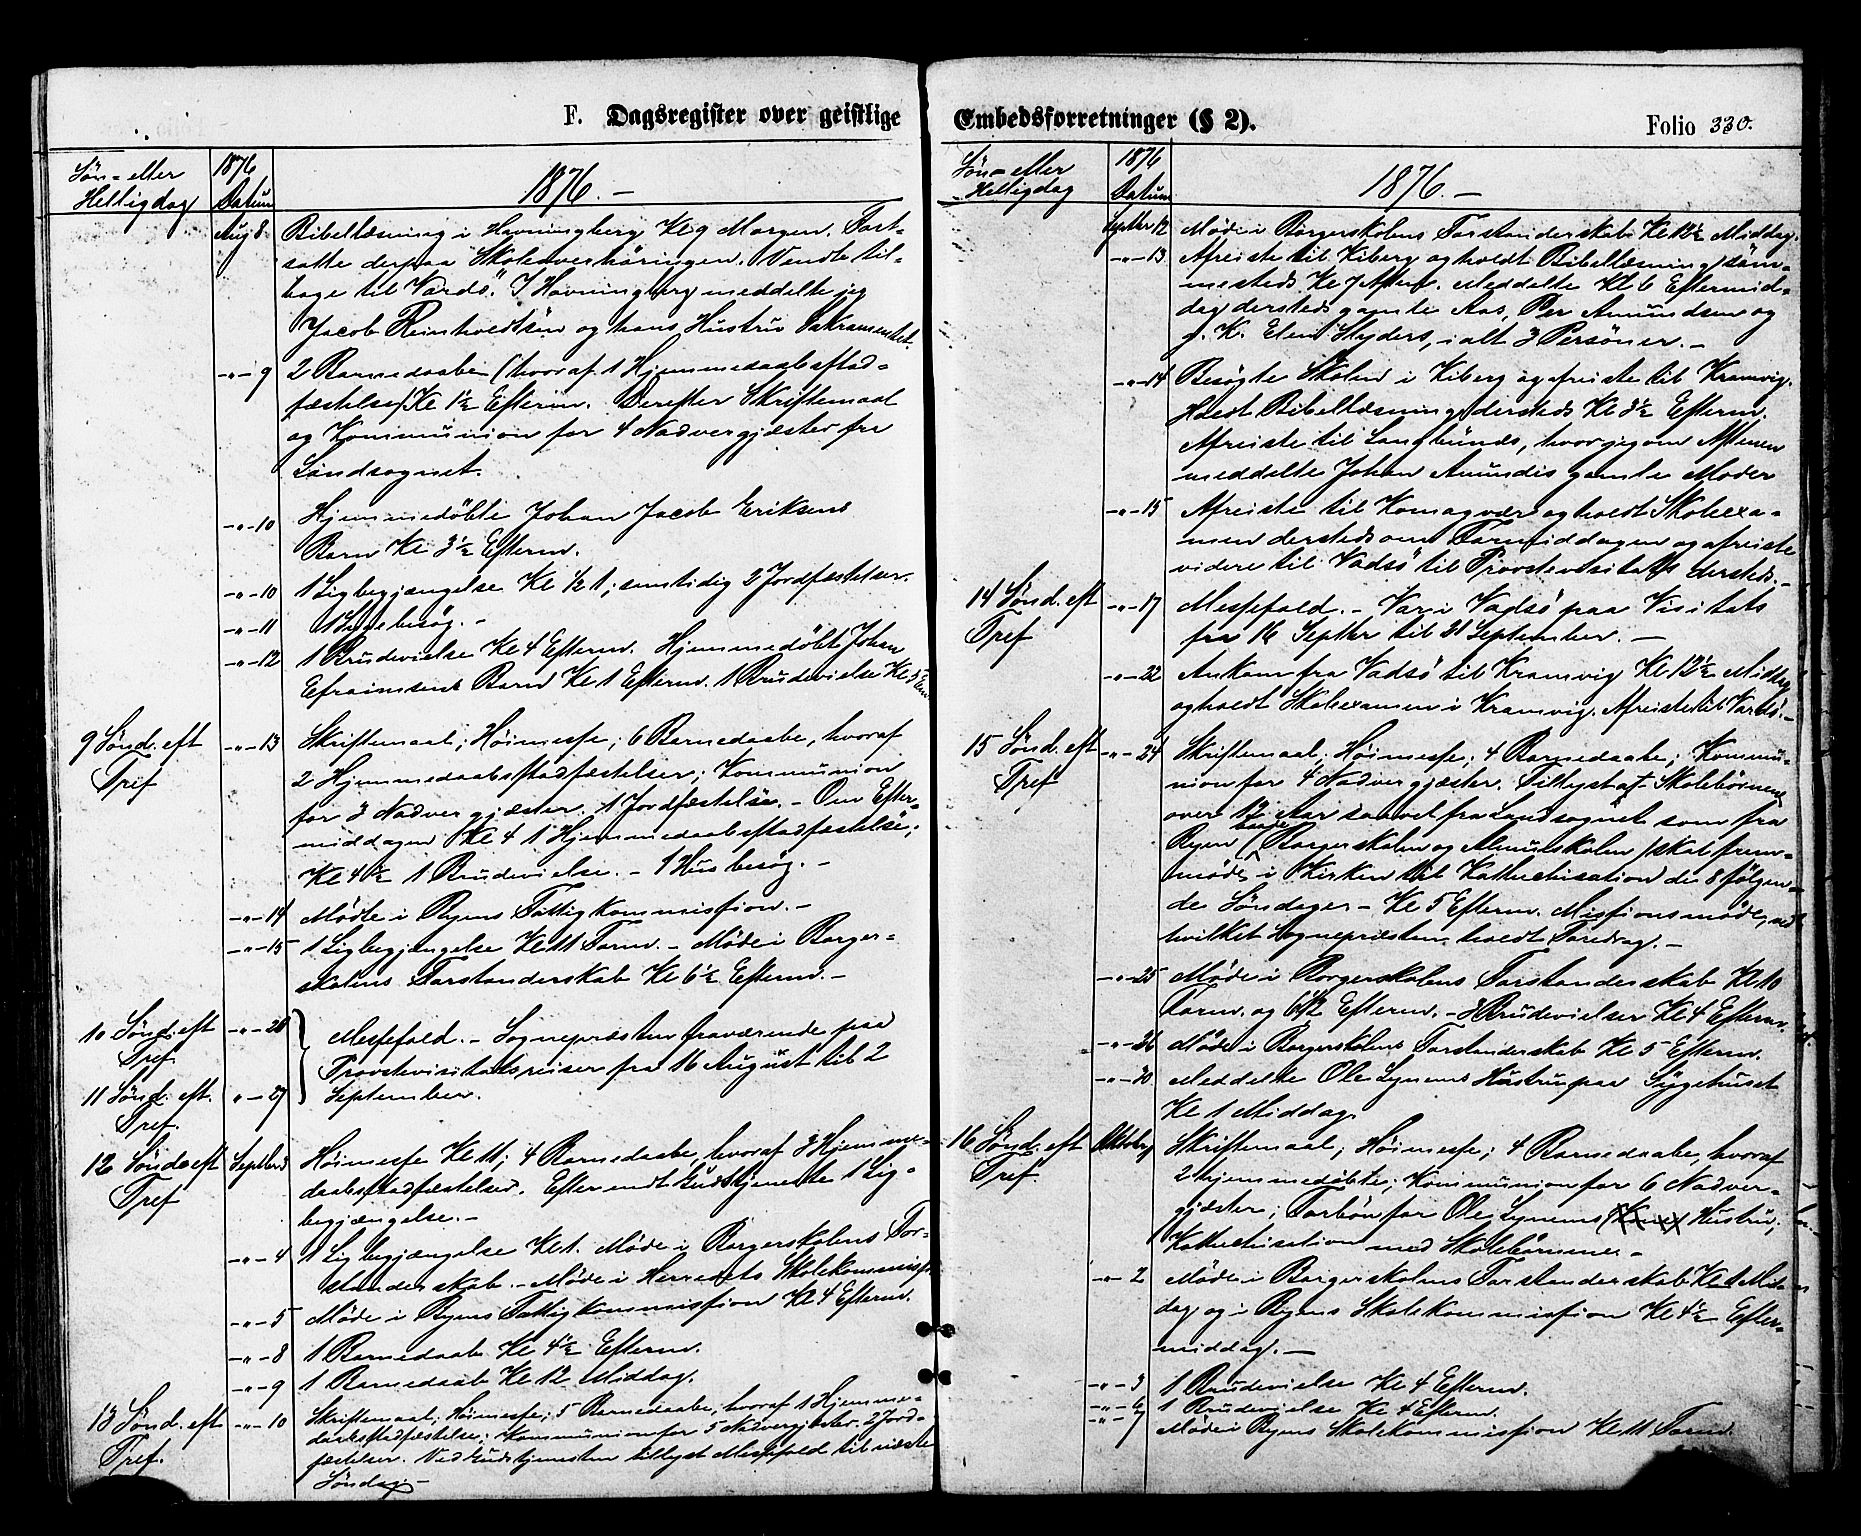 F. Dagsregister over geistlige
Søn- eller
Helligdag
1876
Datum
1876. —
Aug 8. Bibellæsning i Havningberg Kl 9 Morgen. Fort-
satte derpaa Skoleoverhøringen. Vendte til-
bage til Vardö. I Havningberg meddelte jeg
Jacob Reinholdtsen og hans Hustru Sakramentet.
-"- 9 2 Barnedaabe (hvoraf 1 Hjemmedaabsstad-
fæstelse) Kl 1½ Efterm. Derefter Skriftemaal
og Kommunion for 4 Nadvergjæster fra
Landsognet.
-"- 10 Hjemmedöbte Johan Jacob Eriksens
Barn Kl 3½ Efterm.
-"- 10 1 Ligbegjængelse Kl ½ 1; samtidig 2 Jordfæstelser.
-"- 11 1 Sygebesøg. -
-"- 12 1 Brudevielse Kl 4 Efterm. Hjemmedöbte Johan
Efraimsens Barn Kl 1 Efterm. 1 Brudevielse Kl 5 Em
9 Sönd. eft
Tref
-"- 13 Skriftemaal; Höimesse; 6 Barnedaabe, hvoraf
2 Hjemmedaabsstadfæstelser; Kommunion
for 3 Nadvergjæster. 1 Jordfæstelse. - Om Efter-
middagen Kl 4 1 Hjemmedaabsstadfæstelse;
Kl 4½ 1 Brudevielse. - 1 Husbesøg. -
-"- 14 Möde i Byens Fattigkommission. -
-"- 15 1 Ligbegjængelse Kl 11 Form. - Möde i Borger-
skolens Forstanderskab Kl 6½ Efterm. -
10 Sönd. eft
Tref.
-"- 20 Messefald. - Sognepræsten fraværende paa
Provstevisitatsreiser fra 16 August til 2
11 Sönd. eft.
Tref.
"- 27 September.
12 Sönd eft
Tref
Septbr 3 Höimesse Kl 11; 4 Barnedaabe, hvoraf 3 Hjemme-
daabsstadfæstelser. Efter endt Gudstjeneste 1 Lig-
begjængelse. -
-"- 4 1 Ligbegjængelse Kl 1. Möde i Borgerskolens For-
standerskab. - Möde i Herredets Skolekommission
-"- 5 Möde i Byens Fattigkommission Kl 4 Efterm.
-"- 8 1 Barnedaab Kl 4½ Efterm.
-"- 9 1 Barnedaab Kl 12 Middag.
13 Sönd. eft
Tref.
-"- 10 Skriftemaal; Höimesse; 5 Barnedaabe, hvoraf 1 Hjemme-
daabsstadfæstelse; Kommunion for 5 Nadvergjæster. 2 Jord-
fæstelser. Ved Gudstjenesten tillyst Messefald til næste
Söndag. -
Embedsforretninger (§ 2).
Folio 330.
Søn- eller
Helligdag
1876
Datum
1876. —
Septbr 12 Möde i Borgerskolens Forstanderskab Kl 12½ Middag.
-"- 13 Afreiste til Kiberg og holdt Bibellæsning sam-
mesteds Kl 7 Aften. Meddelte Kl 6 Eftermid-
dag dersteds gamle Aas, Per Amundsen og
g. K. Elen Slyders, ialt 3 Personer. -
-"- 14 Besögte Skolen i Kiberg og afreiste til Kramvig.
Holdt Bibellæsning dersteds Kl 3½ Efterm.
Afreiste til Langbunæs, hvor jeg om Aftenen
meddelte Johan Amundis gamle Moder
-"- 15 Afreiste til Komagvær og holdt Skoleexa-
men dersteds om Formiddagen og afreiste
videre til Vadsö til Provstevisitats dersteds. -
14 Sønd. eft
Tref
-"- 17 Messefald. - Var i Vadsö paa Visitats
fra 16 Septbr til 21 September. —
-"- 22 Ankom fra Vadsö til Kramvig Kl 12½ Middag
og holdt Skoleexamen i Kramvig. Afreiste til Vardö. -
15 Sönd. eft
Tref
-"- 24 Skriftemaal; Höimesse; 4 Barnedaabe; Kommu-
nion for 4 Nadvergjæster. Tillyst at Skolebörnene
over 12 Aar saavel fra Landsognet som fra
Byen (baade Borgerskolen og Almueskolen) skal frem-
möde i Kirken til Kathechisation de 8 fölgen-
de Söndager - Kl 5 Efterm. Missionsmöde, ved
hvilket Sognepræsten holdt Foredrag. -
-"- 25 Möde i Borgerskolens Forstanderskab Kl 10
Form. og 6½ Efterm. - 2 Brudevielser Kl 4 Efterm.
-"- 26 Möde i Borgerskolens Forstanderskab Kl 5 Efterm.
-"- 30 Meddelte Ole Lynems Hustru paa Sygehuset
Kl 1 Middag.
16 Sönd. eft
Tref.
Oktober 1 Skriftemaal; Höimesse; 4 Barnedaabe, hvoraf
2 hjemmedöbte; Kommunion for 6 Nadver-
gjæster; Forbön for Ole Lynems (Kone) Hustru;
Kathechisation med Skolebörnene -
-"- 2 Möde i Borgerskolens Forstanderskab Kl 1 Mid-
dag og i Byens Skolekommission Kl 4½ Efter-
middag. —
-"- 3 1 Brudevielse Kl 4 Efterm.
-"- 6 1 Brudevielse Kl 4 Efterm.
-"- 7 Möde i Byens Skolekommission Kl 11 Form.